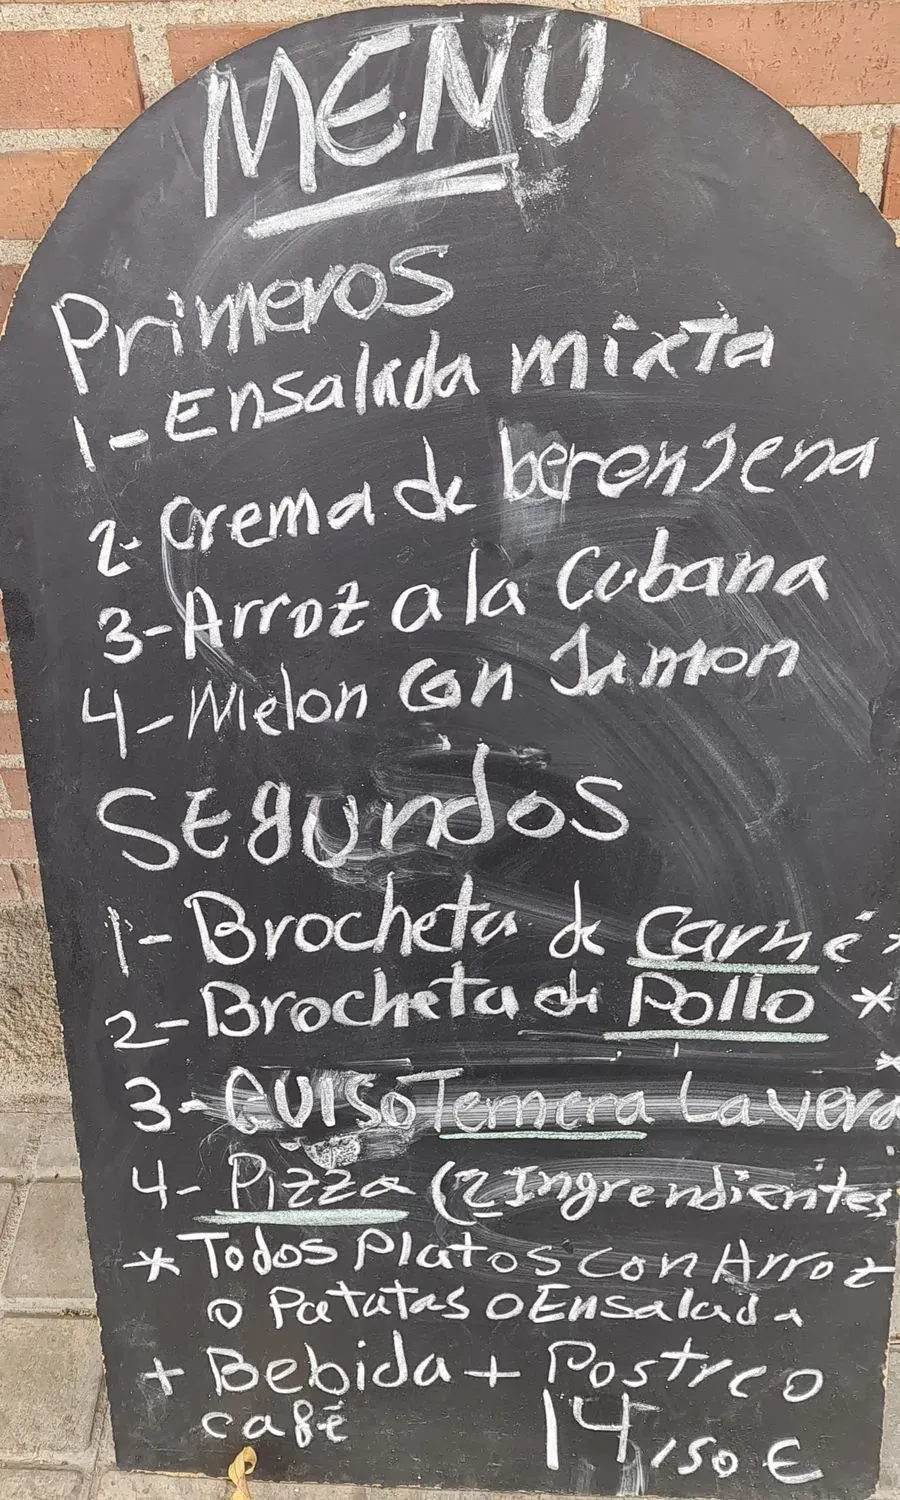 MENU
Primeros
1-Ensalada mixta
2-Crema de berenJena
3-Arroz a la Cubana
4-Melon Con Jamon
SEgundos
1-Brocheta de Carne *
2-Brocheta de Pollo *
3-GUISO Ternera La vera *
4-Pizza (2 Ingrendientes
* Todos Platos con Arroz
o Patatas o Ensalada
+ Bebida + Postre o
café 14,50 €